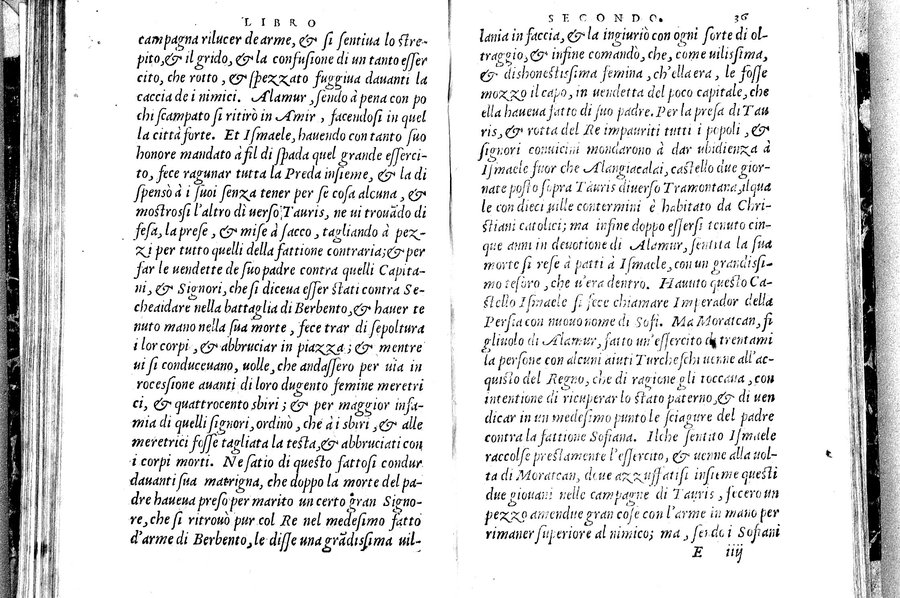 LIBRO
campagna rilucer de arme, & si sentiua lo stre-
pito, & il grido, & la confusione di un tanto esser
cito, che rotto, & spezzato fuggiua dauanti la
caccia de i nimici. Alamur, sendo à pena con po
chi scampato si ritirò in Amir, facendosi in quel
la città forte. Et Ismaele, hauendo con tanto suo
honore mandato à fil di spada quel grande esserci-
to, fece ragunar tutta la Preda insieme, & la di
spensò à i suoi senza tener per se cosa alcuna, &
mostrossi l'altro dì uerso Tauris, ne ui trouãdo di
fesa, la prese, & mise à sacco, tagliando à pez-
zi per tutto quelli della fattione contraria; & per
far le uendette de suo padre contra quelli Capita-
ni, & Signori, che si diceua esser stati contra Se-
cheaidare nella battaglia di Berbento, & hauer te
nuto mano nella sua morte, fece trar di sepoltura
i lor corpi, & abbruciar in piazza; & mentre
ui si conduceuano, uolle, che andassero per uia in
rocessione auanti di loro dugento femine meretri
ci, & quattrocento sbiri; & per maggior infa-
mia di quelli signori, ordinò, che à i sbiri, & alle
meretrici fosse tagliata la testa, & abbruciati con
i corpi morti. Ne satio di questo fattosi condur
dauanti sua matrigna, che doppo la morte del pa-
dre haueua preso per marito un certo gran Signo-
re, che si ritrouò pur col Re nel medesimo fatto
d'arme di Berbento, le disse una grãdissima uil-
SECONDO. 36
lania in faccia, & la ingiuriò con ogni sorte di ol-
traggio, & infine comandò, che, come uilissima,
& dishonestissima femina, ch'ella era, le fosse
mozzo il capo, in uendetta del poco capitale, che
ella haueua fatto di suo padre. Per la presa di Tau
ris, & rotta del Re impauriti tutti i popoli, &
signori conuicini mondarono à dar ubidienza à
Ismaele fuor che Alangiacalai, castello due gior-
nate posto sopra Tauris diuerso Tramontana, ilqua
le con dieci uille contermini è habitato da Chri-
stiani catolici; ma infine doppo essersi tenuto cin-
que anni in deuotione di Alamur, sentita la sua
morte si rese à patti à Ismaele, con un grandissi-
mo tesoro, che u'era dentro. Hauuto questo Ca-
stello Ismaele si fece chiamare Imperador della
Persia con nuouo nome di Sofì. Ma Moratcan, fi
gliuolo di Alamur, fatto un'essercito di trentami
la persone con alcuni aiuti Turcheschi uenne all'ac-
quisto del Regno, che di ragione gli toccaua, con
intentione di ricuperar lo stato paterno, & di uen
dicar in un medesimo punto le sciagure del padre
contra la fattione Sofiana. Ilche sentito Ismaele
raccolse prestamente l'essercito, & uenne alla uol-
ta di Moratcan, doue azzuffatisi insieme questi
due giouani nelle campagne di Tauris, fecero un
pezzo amendue gran cose con l'arme in mano per
rimaner superiore al nimico; ma, sendo i Sofiani
E iiij